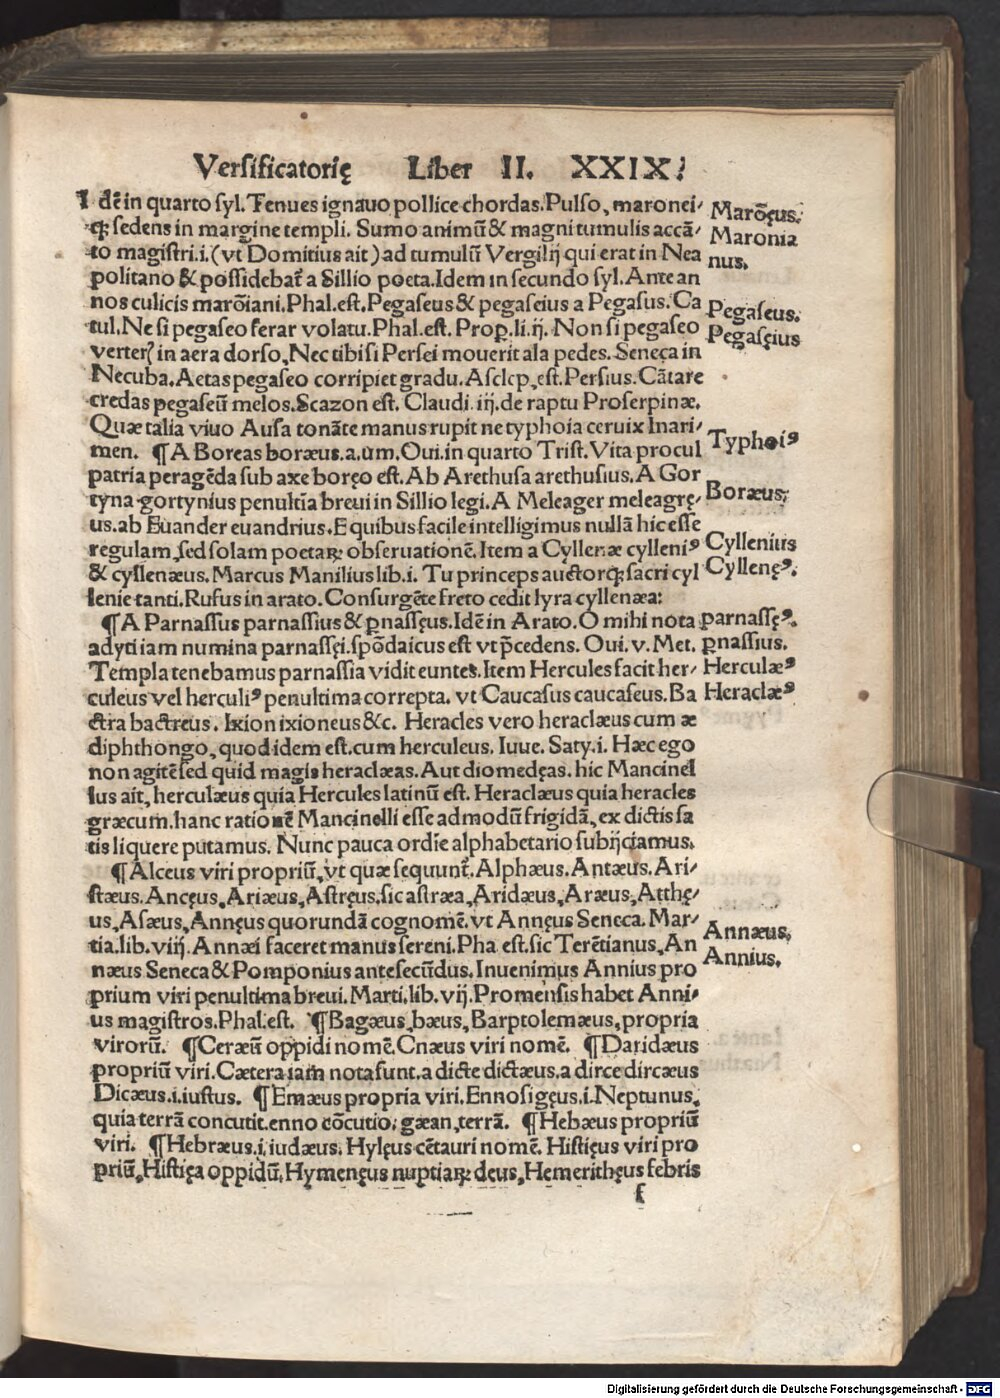 Versificatorię Liber II. XXIX.
Idē in quarto syl. Tenues ignauo pollice chordas. Pulso, maronei⸗
qꝫ sedens in margine templi. Sumo animū & magni tumulis accā⸗
to magistri.i.(vt Domitius ait) ad tumulū Vergilij qui erat in Nea
politano & possidebat̃ a Sillio poeta. Idem in secundo syl. Ante an
nos culicis marōiani. Phal.est. Pegaseus & pegaseius a Pegasus. Ca
tul. Ne si pegaseo ferar volatu. Phal.est. Prop. li.ij. Non si pegaseo
verter̃ in aera dorso, Nec tibi si Persei mouerit ala pedes. Seneca in
Necuba. Aetas pegaseo corripiet gradu. Asclep. est. Persius. Cātare
credas pegaseū melos. Scazon est. Claudi. iij. de raptu Proserpinæ.
Quæ talia viuo Ausa tonāte manus rupit ne typhoia ceruix Inari⸗
men. ¶A Boreas boræus.a.um. Oui. in quarto Trist. Vita procul
patria peragēda sub axe boręo est. Ab Arethusa arethusius. A Gor
tyna gortynius penultīa breui in Sillio legi. A Meleager meleagrę⸗
us. ab Euander euandrius. E quibus facile intelligimus nullā hic esse
regulam, sed solam poetaꝝ obseruationē. Item a Cyllenæ cylleniꝰ
& cyllenæus. Marcus Manilius lib.i. Tu princeps auctorqꝫ sacri cyl
lenie tanti. Rufus in arato. Consurgēte freto cedit lyra cyllenæa:
¶A Parnassus parnassius & ꝑnassęus. Idē in Arato. O mihi nota
adyti iam numina parnassęi. spōdaicus est vt p̄cedens. Oui. v. Met.
Templa tenebamus parnassia vidit euntes. Item Hercules facit her⸗
culeus vel herculiꝰ penultima correpta. vt Caucasus caucaseus. Ba
ctra bactreus. Ixion ixioneus &c. Heracles vero heraclæus cum æ
diphthongo, quod idem est.cum herculeus. Iuue. Saty.i. Hæc ego
non agitē sed quid magis heraclæas. Aut diomedęas. hic Mancinel
lus ait, herculæus quia Hercules latinū est. Heraclæus quia heracles
græcum. hanc rationē Mancinelli esse admodū frigidā, ex dictis sa
tis liquere putamus. Nunc pauca ordīe alphabetario subijciamus.
¶Alceus viri propriū, vt quæ sequunt̃. Alphæus. Antæus. Ari⸗
stæus. Ancęus, Ariæus, Astręus, sic astræa, Aridæus, Aræus, Atthę⸗
us, Asæus, Annęus quorundā cognomē. vt Annęus Seneca. Mar⸗
tia. lib. viij. Annæi faceret manus sereni. Pha est. sic Terētianus, An
næus Seneca & Pomponius ante secūdus. Inuenimus Annius pro
prium viri penultima breui. Marti. lib. vij. Promensis habet Anni⸗
us magistros. Phal.est. ¶Bagæus, bæus, Barptolemæus, propria
virorū. ¶Ceræū oppidi nomē. Cnæus viri nomē. ¶Daridæus
propriū viri. Cætera iam nota sunt. a dicte dictæus, a dirce dircæus
Dicæus.i.iustus. ¶Emæus propria viri, Ennosigęus.i. Neptunus,
quia terrā concutit. enno cōcutio, gæan, terrā. ¶Hebæus propriū
viri. ¶Hebræus.i.iudæus. Hylęus cētauri nomē. Histięus viri pro
priū, Histięa oppidū, Hymenęus nuptiaꝝ deus, Hemerithęus febris
f
Marōęus.
Maronia
nus.
Pegaseus.
Pegasęius
Typhoiꝰ
Boræus.
Cyllenius
Cyllenęꝰ.
parnassęꝰ.
ꝑnassius.
Herculæꝰ
Heraclæꝰ
Annæus,
Annius.
Digitalisierung gefördert durch die Deutsche Forschungsgemeinschaft - DFG